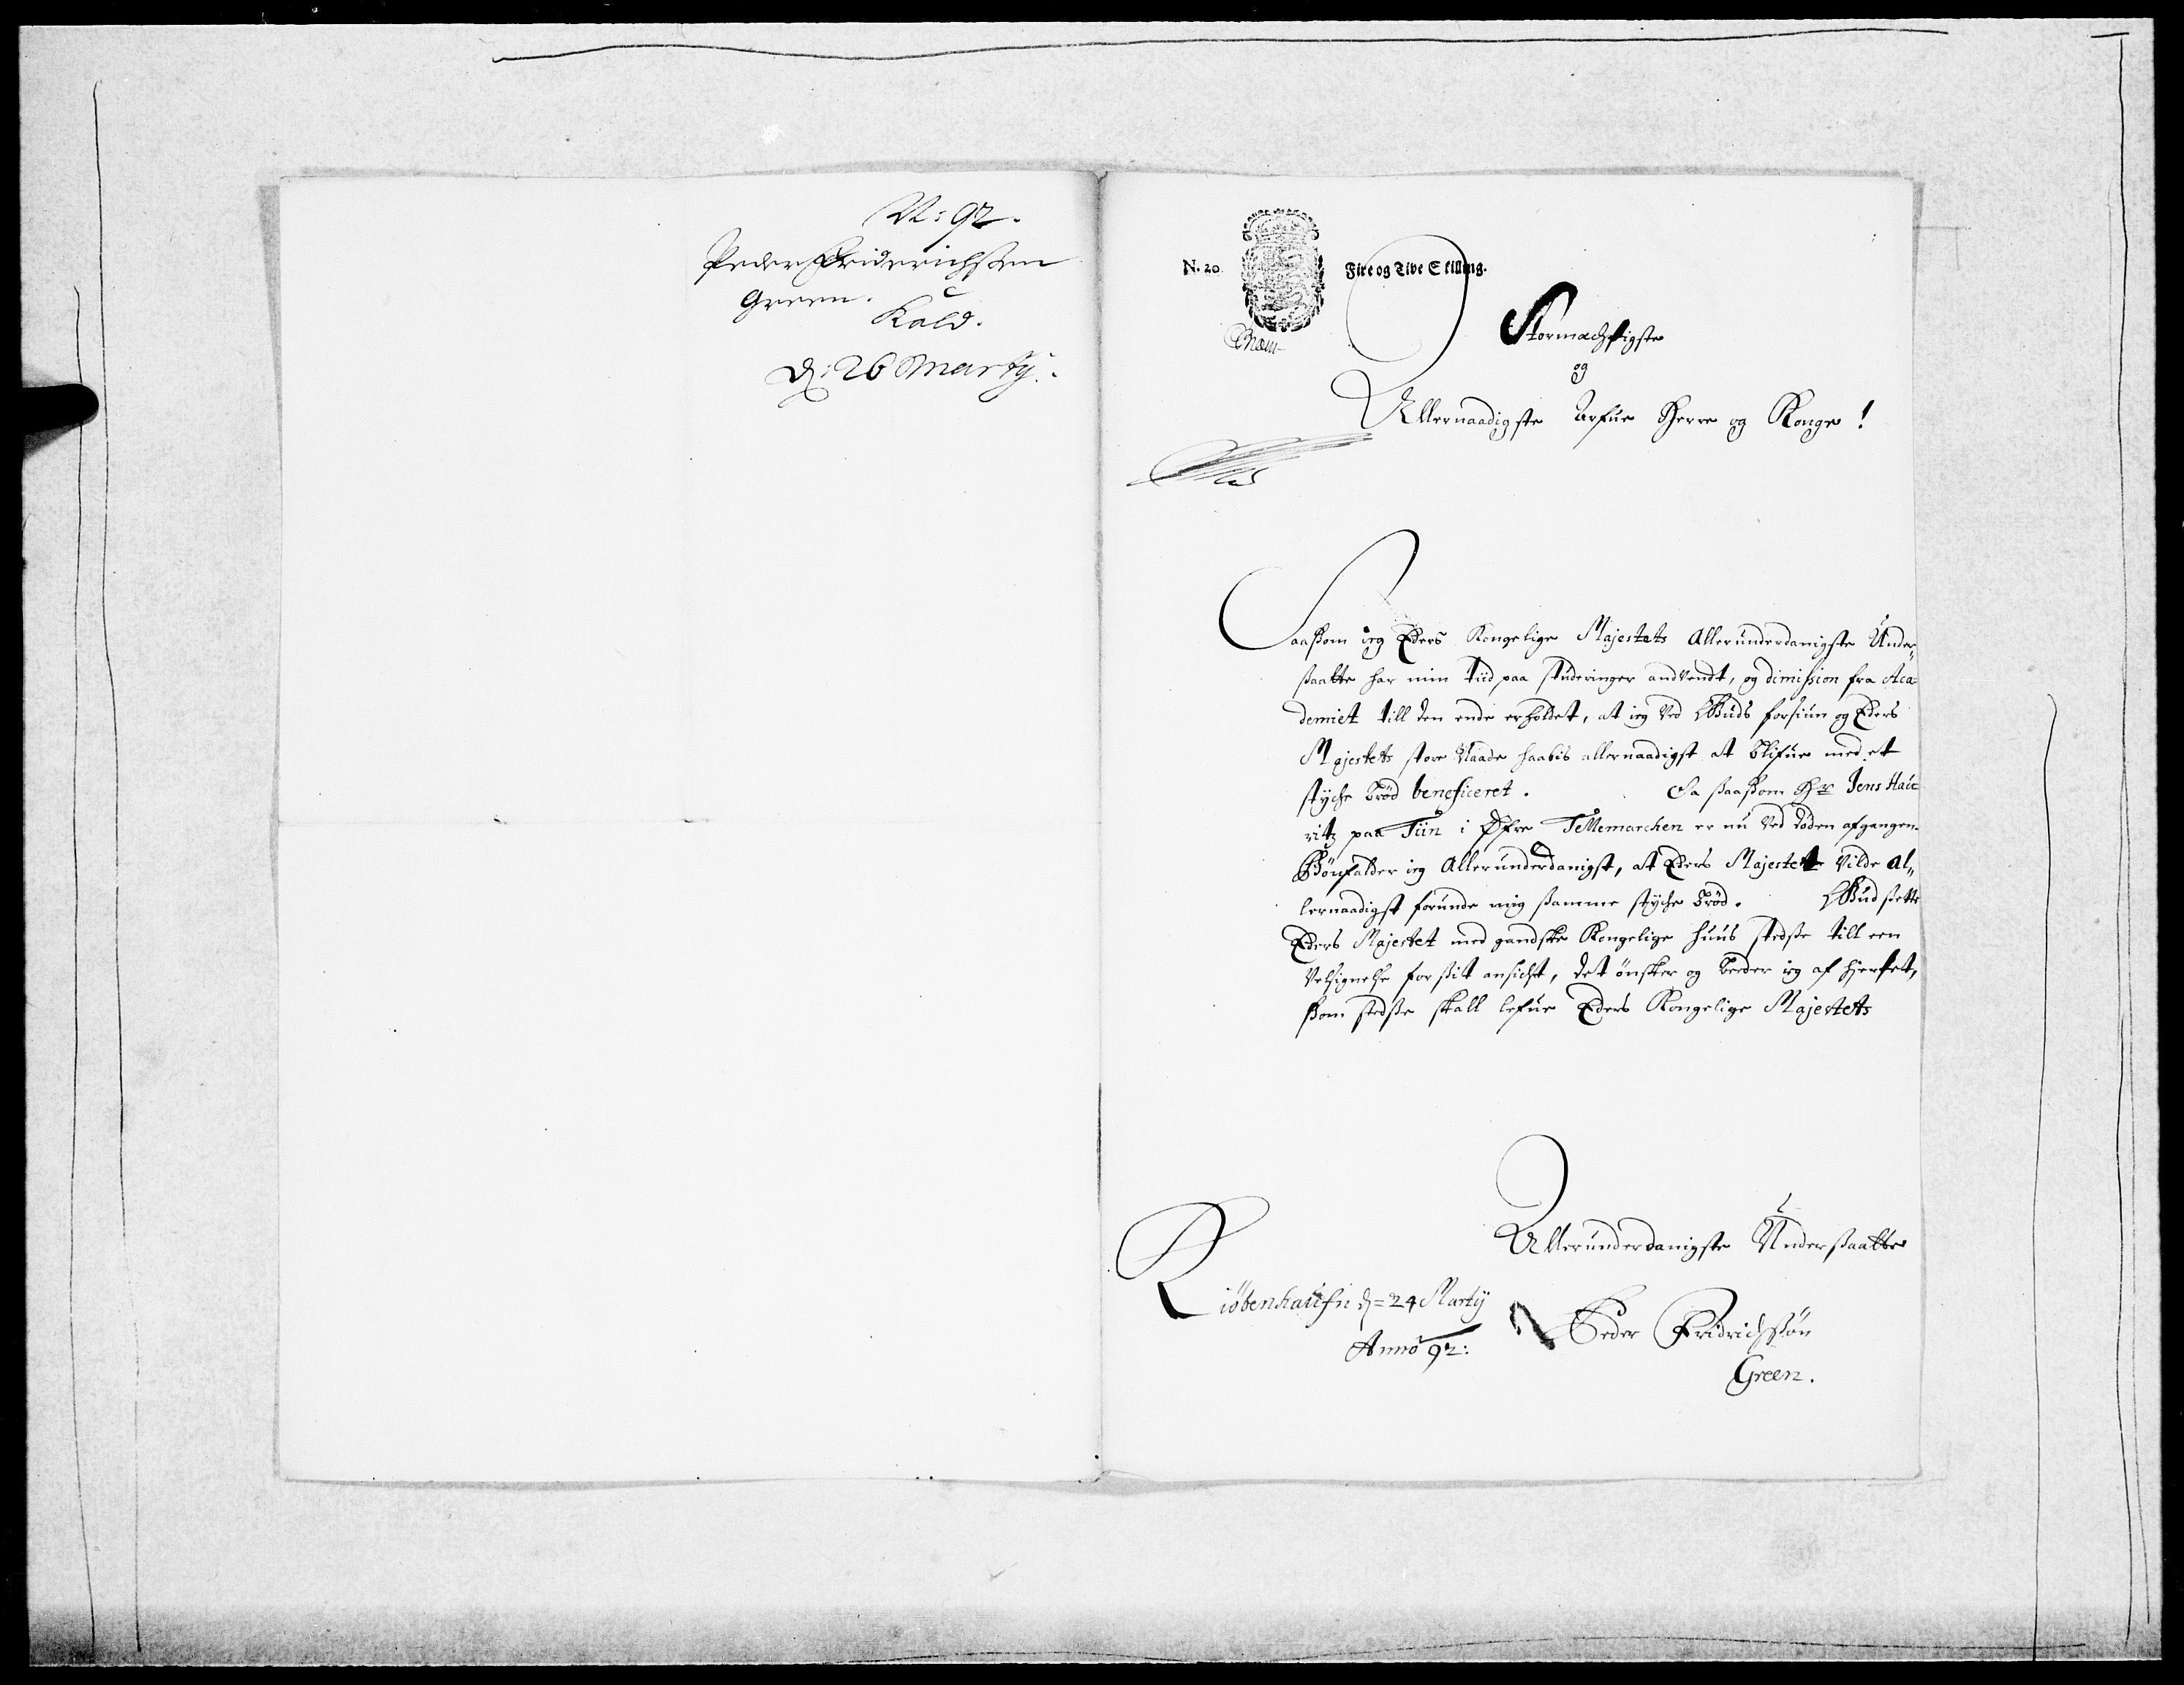 N: 92.
Peder Friderichssen
Green.
Kald.
d: 26 Martij.
N. 20. Fire og Tive Skilling.
Stormachtigste
og
Allernaadigste Arfue Herre og Konge!
Saassom ieg Eders Kongelige Majestets Allerunderdanigste Under„
ssaatte har min tiid paa studeringer andvendt, og dimission fra Aca=
demiet till den ende erholdet, at ieg ved Guds forsiun og Eders
Majestets store Naade haabis allernaadigst at blifue med et
styche brød beneficeret. Da ssaassom Hr Jens Hau=
ritz paa Tiin i Øfre Tellemarchen er nu ved døden afgangen
Bønfalder ieg Allerunderdanigst, at Eders Majestet vilde al„
lernaadigst forunde mig ssamme styche brød. Gud ssette
Eders Majestet med gandske Kongelige huus stedsse till een
velsignelse for ssit ansicht, det ønsker og beeder ieg af hiertet,
ssom stedsse skall lefue Eders Kongelige Majestets
Allerunderdanigste Underssaatte
Kiøbenhaufn d= 24 Martij
Anno 92:
Peder Fridrichssøn
Green.